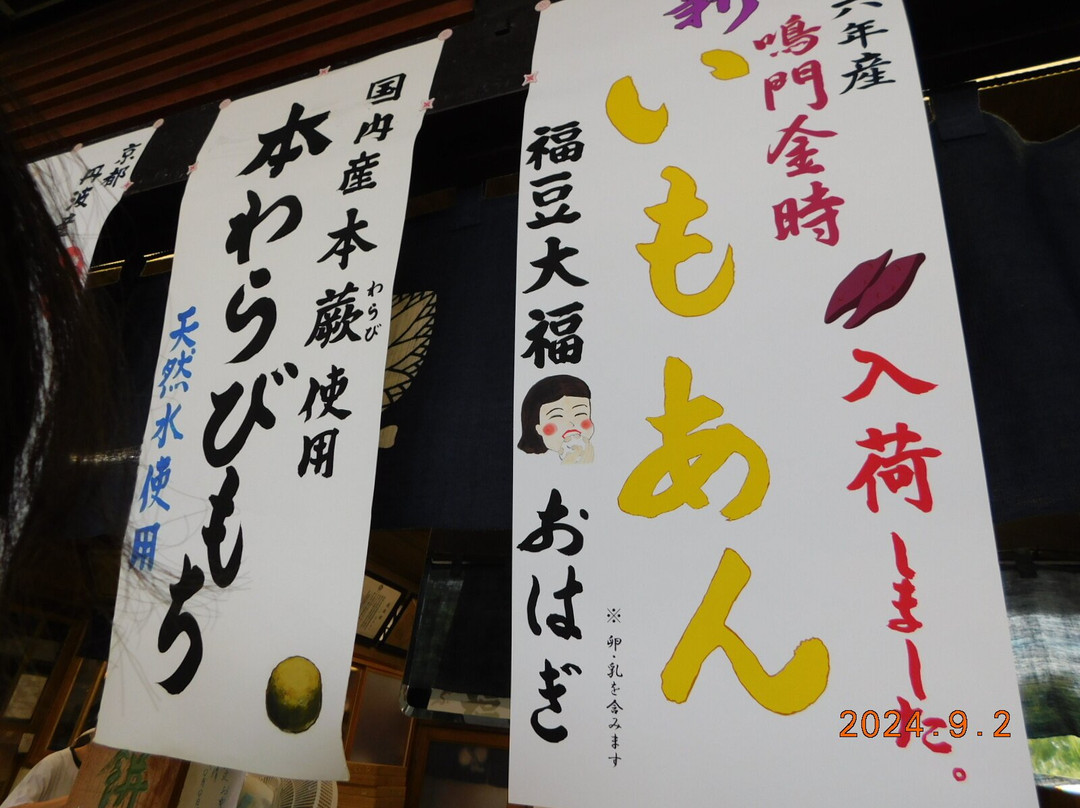 六年産
鳴門金時
入荷しました。
新
いもあん
※卵・乳を含みます
福豆大福
おはぎ
国内産本蕨使用
わらび
本わらびもち
天然水使用
京都
丹波
2024.9.2